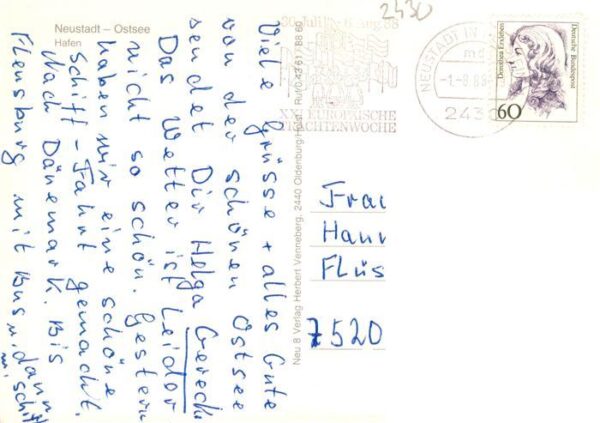 Neustadt – Ostsee
Hafen
Viele Grüsse + alles Gute
von der schönen Ostsee
sendet Dir Helga
Das Wetter ist leider
nicht so schön. Gestern
haben wir eine schöne
Schiff-Fahrt gemacht.
Nach Dänemark. Bis
Flensburg mit Bus u. dann
m. Schiff
Neu 8 Verlag Herbert Venneberg, 2440 Oldenburg/Holst. Ruf 0 43 61 / 88 60
2430
30. Juli - 6. Aug. 88
XXI. EUROPÄISCHE
TRACHTENWOCHE
NEUSTADT IN
2430
Dorothea Erxleben
Deutsche Bundespost
60
Frau
7520